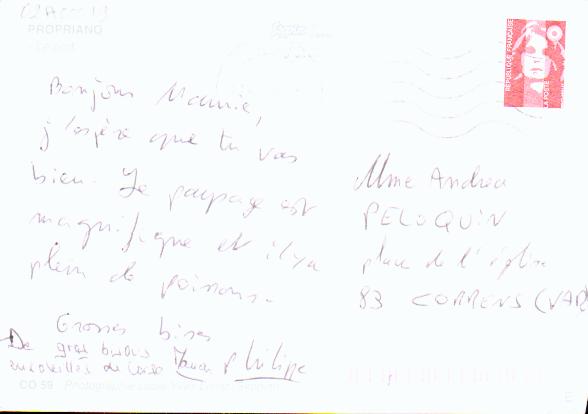 PROPRIANO
Le port
Bonjour Mamie,
j'espère que tu vas
bien. Le paysage est
magnifique et il y a
plein de poissons.
Grosses bises
De gros bisous
ensoleillés de Corse
Philippe
CO 59
RÉPUBLIQUE FRANÇAISE
LA POSTE
Mme Andrea
PELOQUIN
place de l'église
83 CORRENS (VAR)